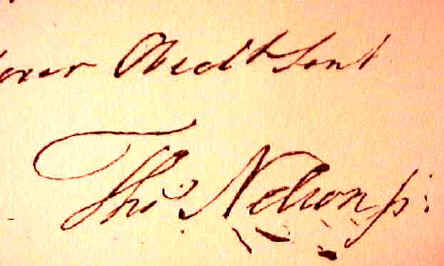 your Obedt Servt
Thos Nelson jr.